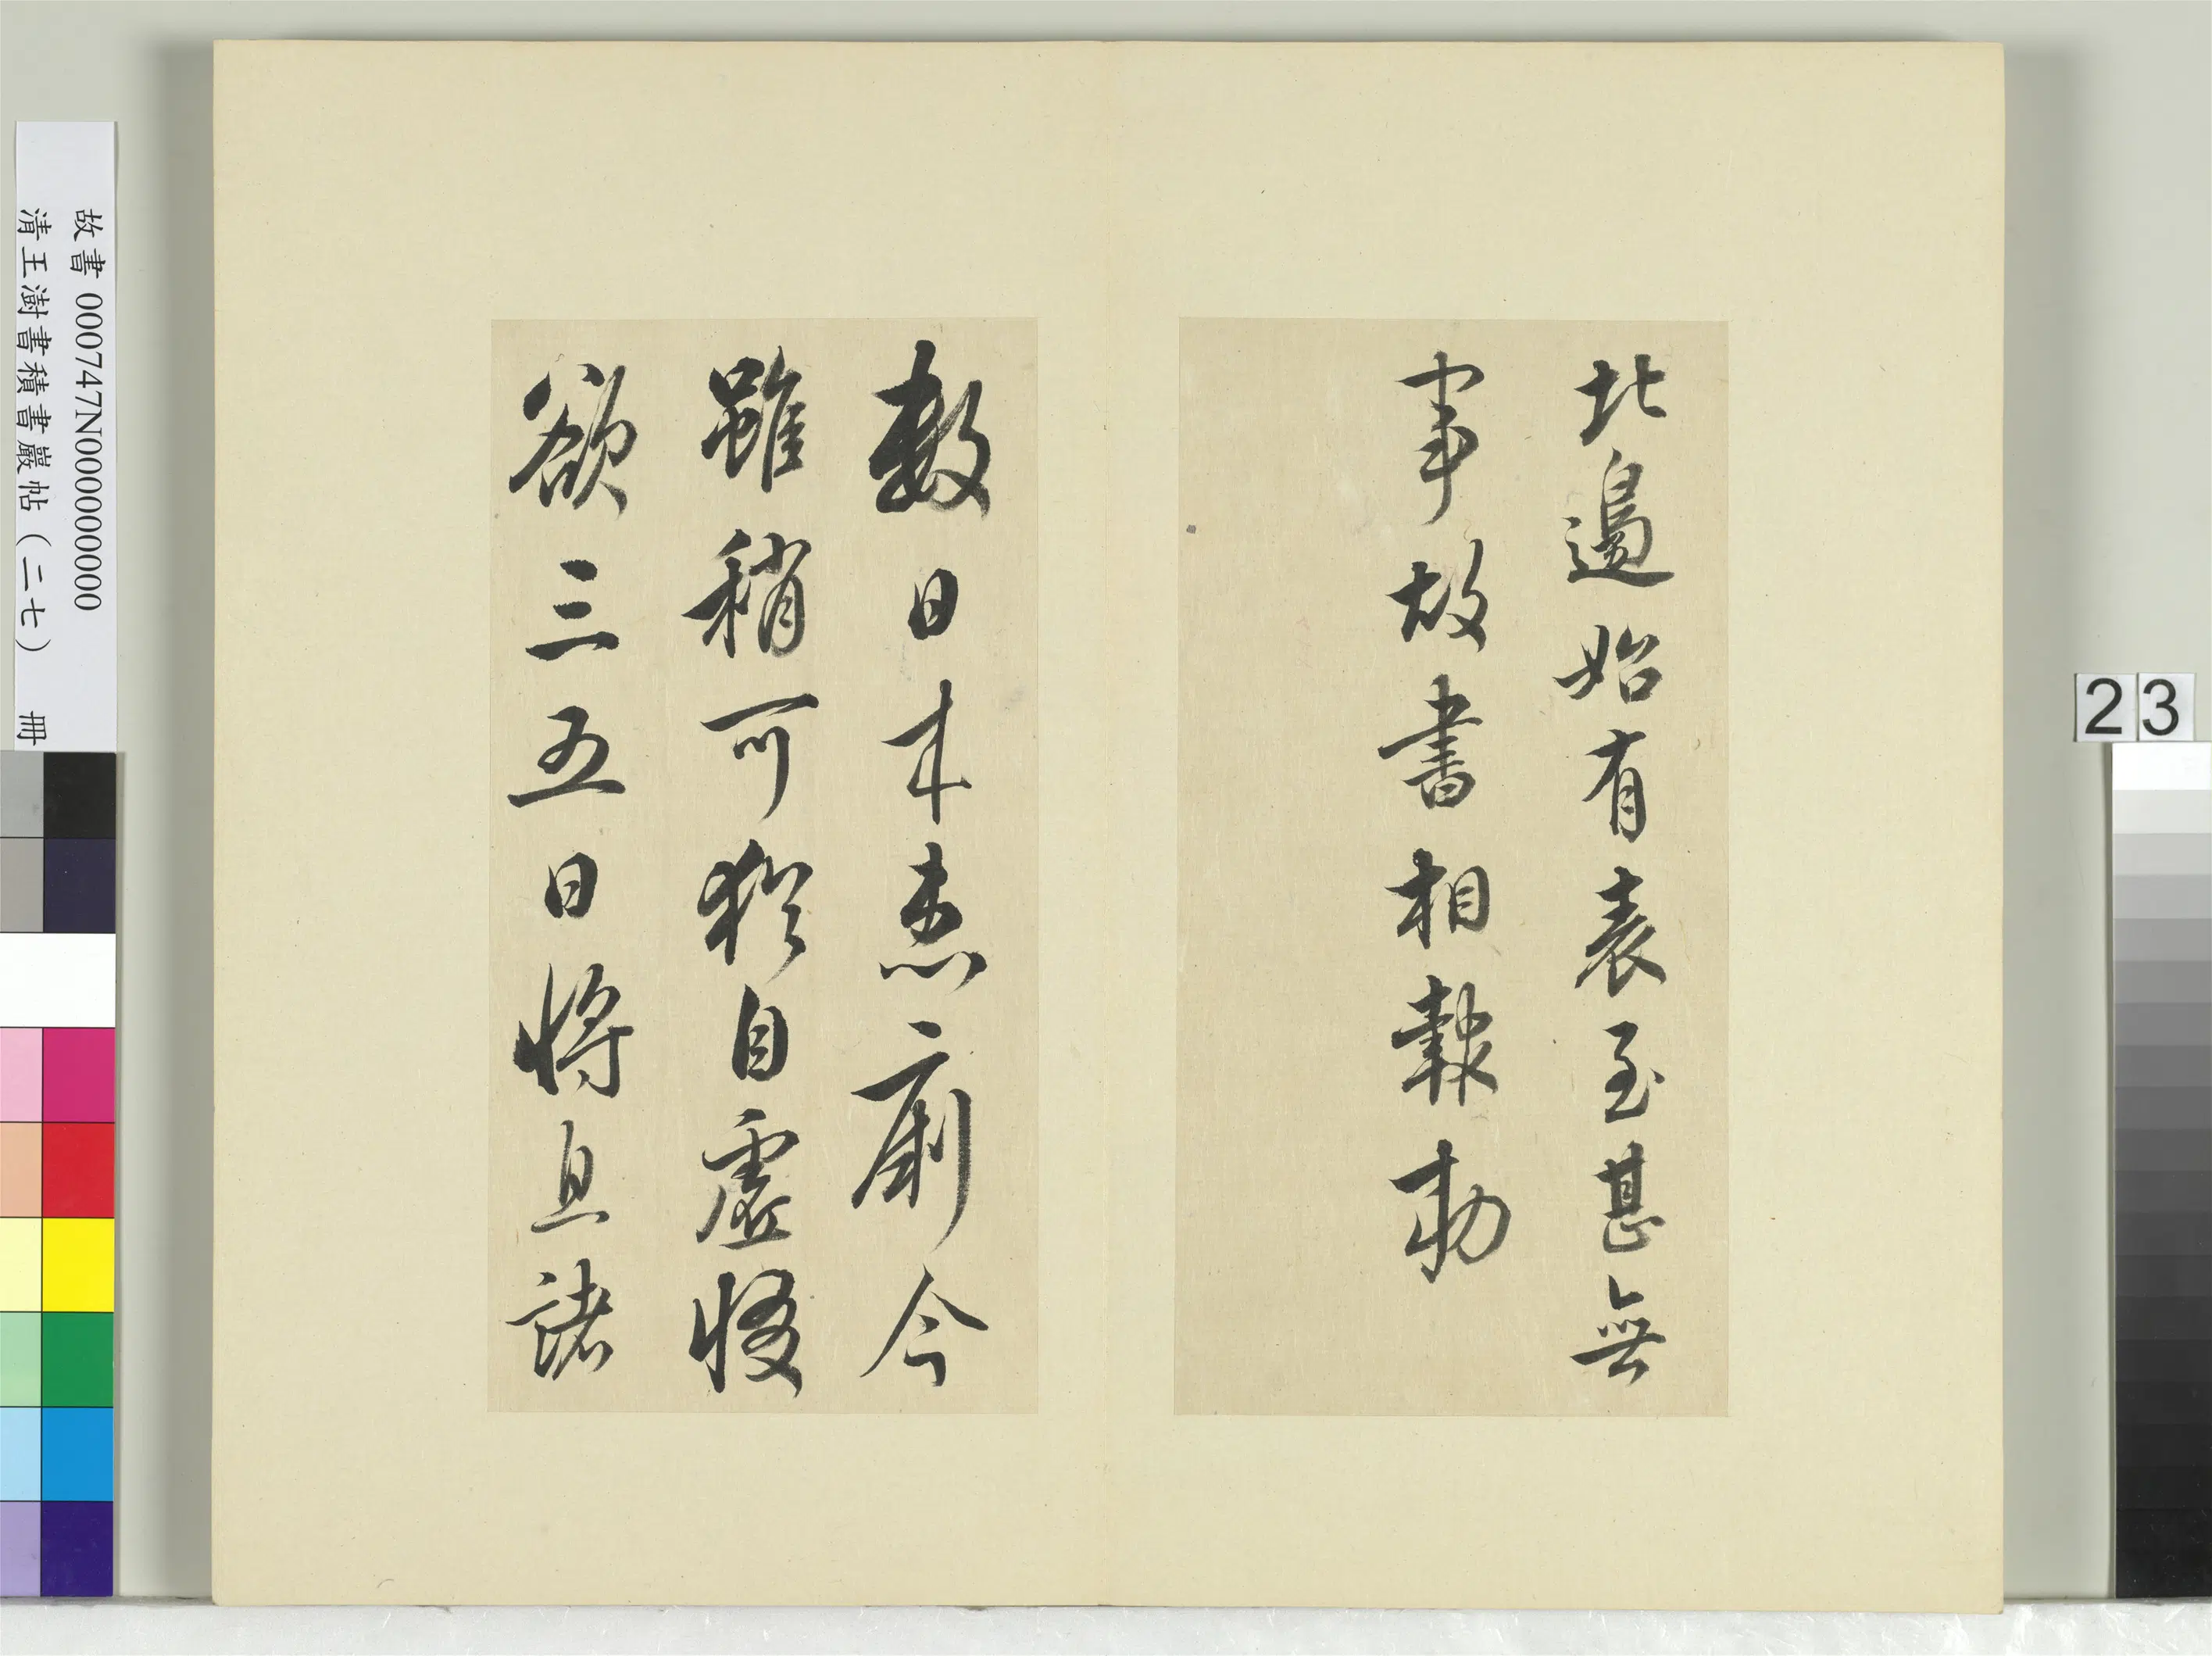 北邊始有表至甚無
事故書相報勅
數日來患痢今
雖稍可猶自虛惙
欲三五日將息諸
故書 000747N000000000
清王澍書積書巖帖（二七） 冊
23